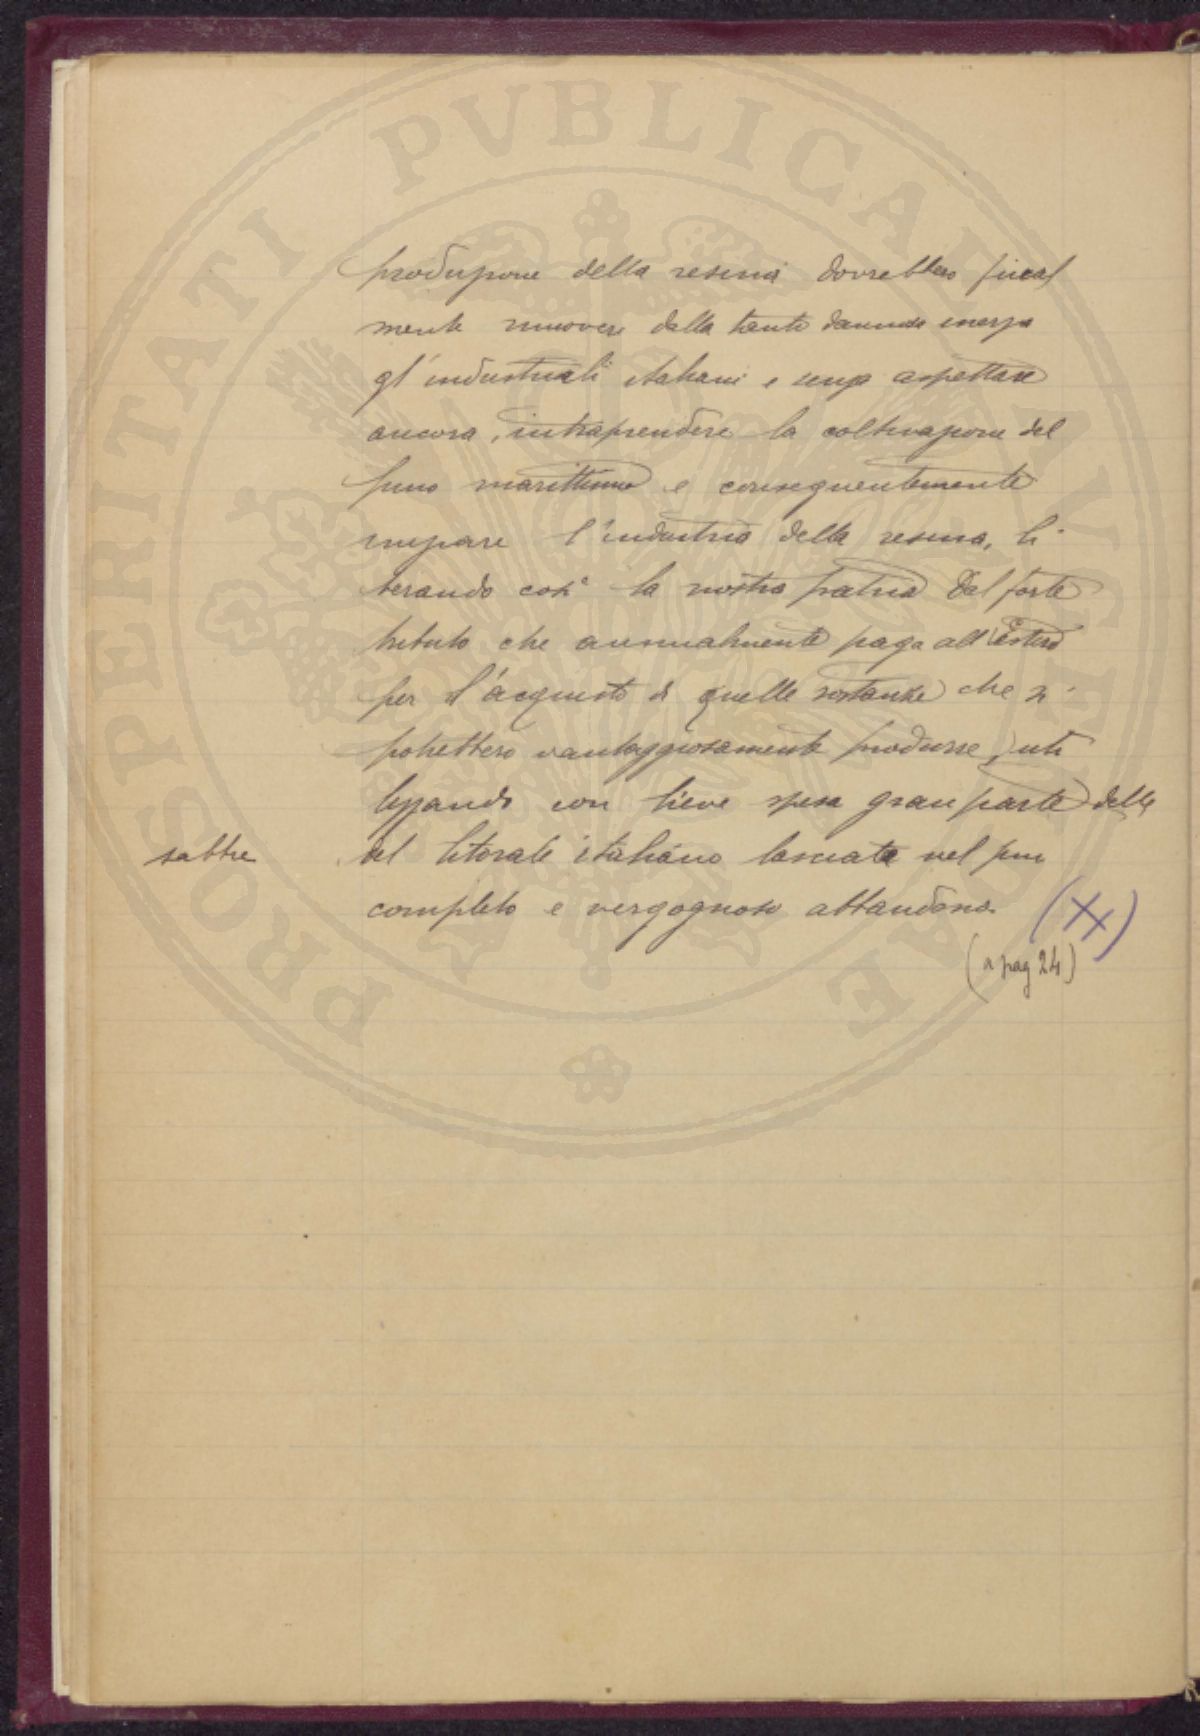 produzione della resina dovrebbero final
mente muovere dalla tanto dannosa inerzia
gl'industriali italiani e senza aspettare
ancora, intraprendere la coltivazione del
pino marittimo e conseguentemente
iniziare l'industria della resina, li-
berando così la nostra patria dal forte
tributo che annualmente paga all'Estero
per l'acquisto di quelle sostanze che si
potrebbero vantaggiosamente produrre, uti
lizzando con lieve spesa gran parte delle
sabbie del litorale italiano lasciate nel più
completo e vergognoso abbandono. (XX)
(a pag 24)
PROSPERITATI PVBLICAE AVGENDAE